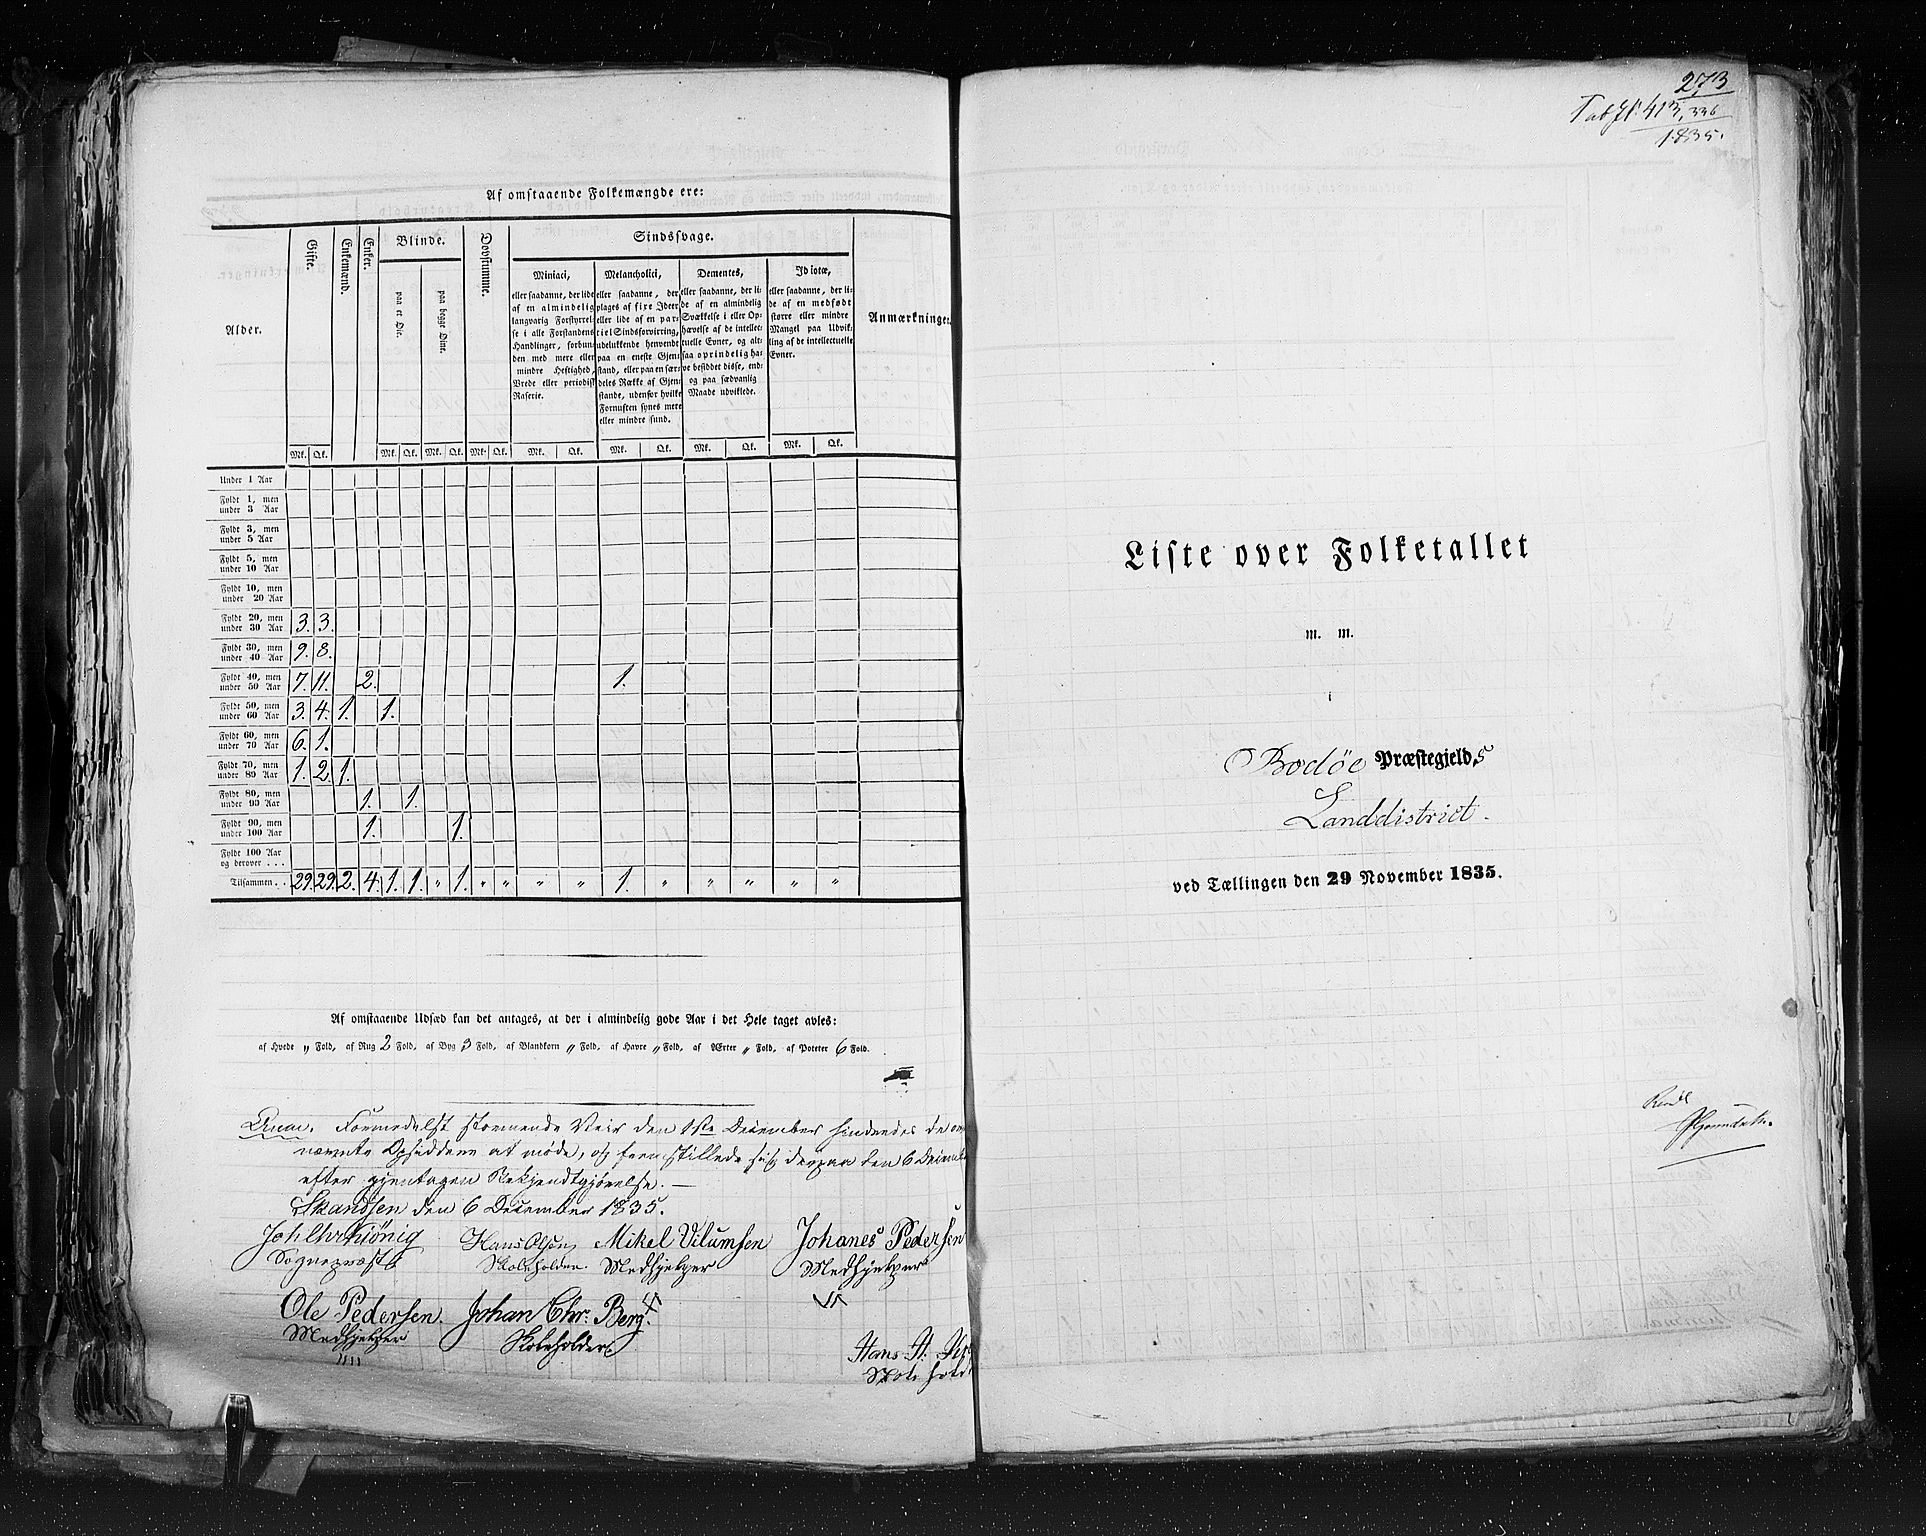 Af omstaaende Folkemængde ere:
Alder.
Gifte.
Enkemænd.
Enker.
Blinde.
paa et Øie.
paa begge Øine.
Døvstumme.
Sindssvage.
Miniaci,
eller saadanne, der lide
af en almindelig
langvarig Forstyrrel-
se i alle Forstandens
Handlinger, forbun-
den med mere eller
mindre Heftighed,
Vrede eller periodisk
Raserie.
Melancholici,
eller saadanne, der
plages af fixe Ideer
eller lide af en par-
tiel Sindsforvirring,
udelukkende henvendt
paa en eneste Gjen-
stand, eller paa en sær-
deles Række af Gjen-
stande, udenfor hvilke
Fornuften synes mere
eller mindre sund.
Dementes,
eller saadanne, der li-
de af en almindelig
Svækkelse i eller Op-
hævelse af de intellec-
tuelle Evner, og alt-
saa oprindelig ha-
ve besiddet disse, end-
og paa sædvanlig
Maade udviklede.
Idiotæ,
eller saadanne, der li-
de af en medfødt
større eller mindre
Mangel paa Udvik-
ling af de intellectuelle
Evner.
Anmærkninger.
Mk. Qk. Mk. Qk. Mk. Qk. Mk. Qk. Mk. Qk. Mk. Qk. Mk. Qk. Mk. Qk.
Under 1 Aar
Fyldt 1, men
under 3 Aar
Fyldt 3, men
under 5 Aar
Fyldt 5, men
under 10 Aar
Fyldt 10, men
under 20 Aar
Fyldt 20, men
under 30 Aar 3. 3.
Fyldt 30, men
under 40 Aar 9. 8.
Fyldt 40, men
under 50 Aar 7. 11. 2. 1.
Fyldt 50, men
under 60 Aar 3. 4. 1. 1.
Fyldt 60, men
under 70 Aar 6. 1.
Fyldt 70, men
under 80 Aar 1. 2 1.
Fyldt 80, men
under 90 Aar 1. 1.
Fyldt 90, men
under 100 Aar 1. 1.
Fyldt 100 Aar
og derover . . .
Tilsammen . . 29. 29. 2. 4. 1. 1. " 1. " " " " 1. " " " " "
Af omstaaende Udsæd kan det antages, at der i almindelig gode Aar i det Hele taget avles:
af Hvede " Fold, af Rug 2 Fold, af Byg 3 Fold, af Blandkorn " Fold, af Havre " Fold, af Ærter " Fold, af Poteter 6 Fold.
Anm. Formedelst stormende Veir den 1ste December hindredes de
nævnte Opsiddere at møde, og fremstillede sig derpaa den 6 Decemb
efter gjentagen Bekjendtgjørelse. —
Skandsen den 6 December 1835.
Hans Olsen Mikel Vilumsen Johanes Pedersen
Sognepræst Skoleholder. Medhjelper Medhjelper
Ole Pedersen. Johan Chr. Berg.
Medhjelper Skoleholder
Hans A.
Skolehold
273
413, 336
1835.
Liste over Folketallet
m. m.
i
Bodöe Præstegjelds
Landdistrict.
ved Tællingen den 29 November 1835.